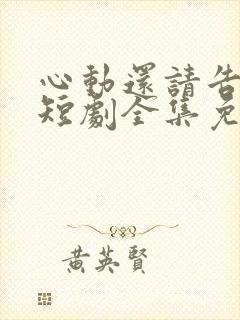 心動還請告
短劇全集免
黃英賢